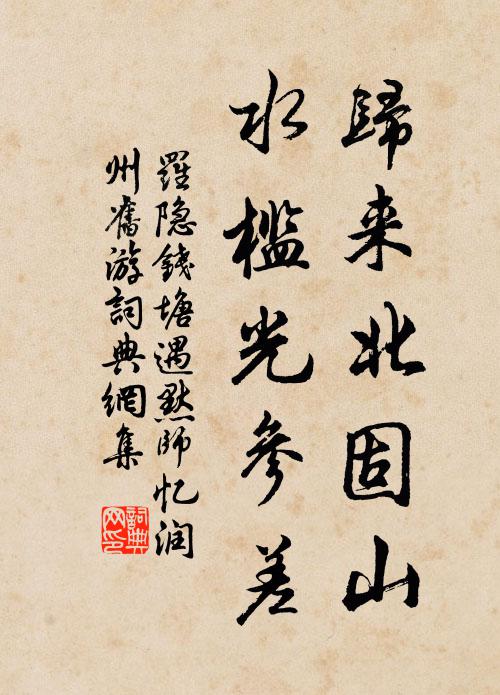 歸来北固山
水檻光參差
羅隐錢塘遇默师忆润
州舊游詞典網集
詞典
网印